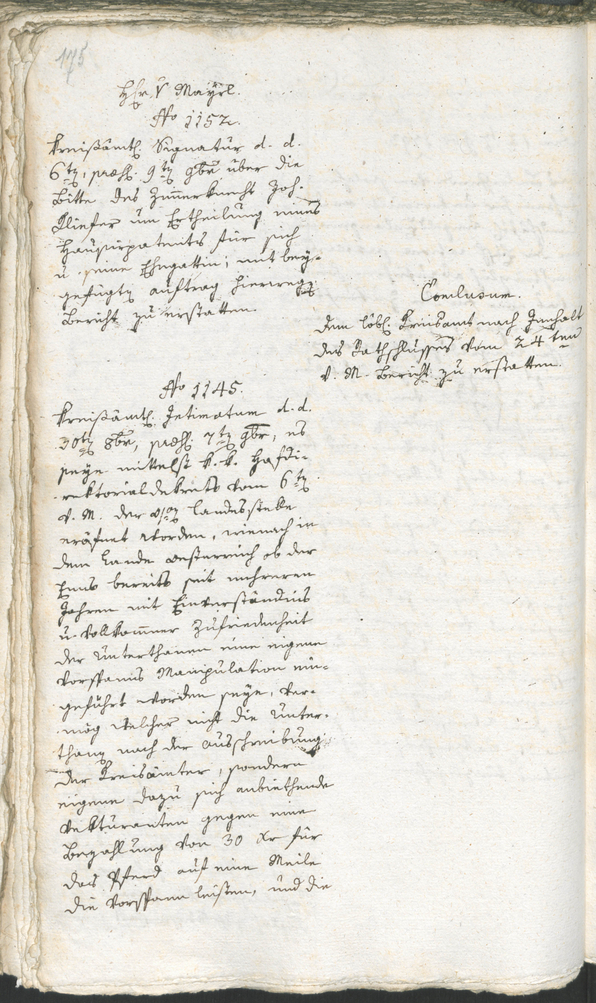 175
Hr. v Mayrl.
No 1152.
Kreisämtl. Signatur d. d.
6ten, praes. 9ten 9br über die
Bitte des Zimmerknecht Joh.
Kliefer um Ertheilung eines
Hausirpatents für sich
u. seine Ehegattin; mit bey-
gefügten auftrag hierwegen
Bericht zu erstatten.
Conclusum.
Dem löbl. Kreisamt nach Innhalt
des Rathschlusses vom 24ten
v. M. Bericht zu erstatten.
No 1145.
Kreisämtl. Intimatum d. d.
30ten 8br, praes. 7ten 9br, es
seye mittelst k. k. Hofdi-
rektorialdekrets vom 6ten
v. M. der Landesstelle
eröfnet worden, wienach in
dem Lande Oesterreich ob der
Enns bereits seit mehreren
Jahren mit Einverständnis
u. vollkommner Zufriedenheit
der Unterthanen eine eigene
Vorspanns Manipulation ein-
geführt worden seye, ver-
mög welcher nicht die Unter-
thanen nach der Ausschreibung
der Kreisämter, sondern
eigene dazu sich anbiethende
Vekturanten gegen eine
Bezahlung von 30 Xr für
das Pferd auf eine Meile
die Vorspann leisten, und die